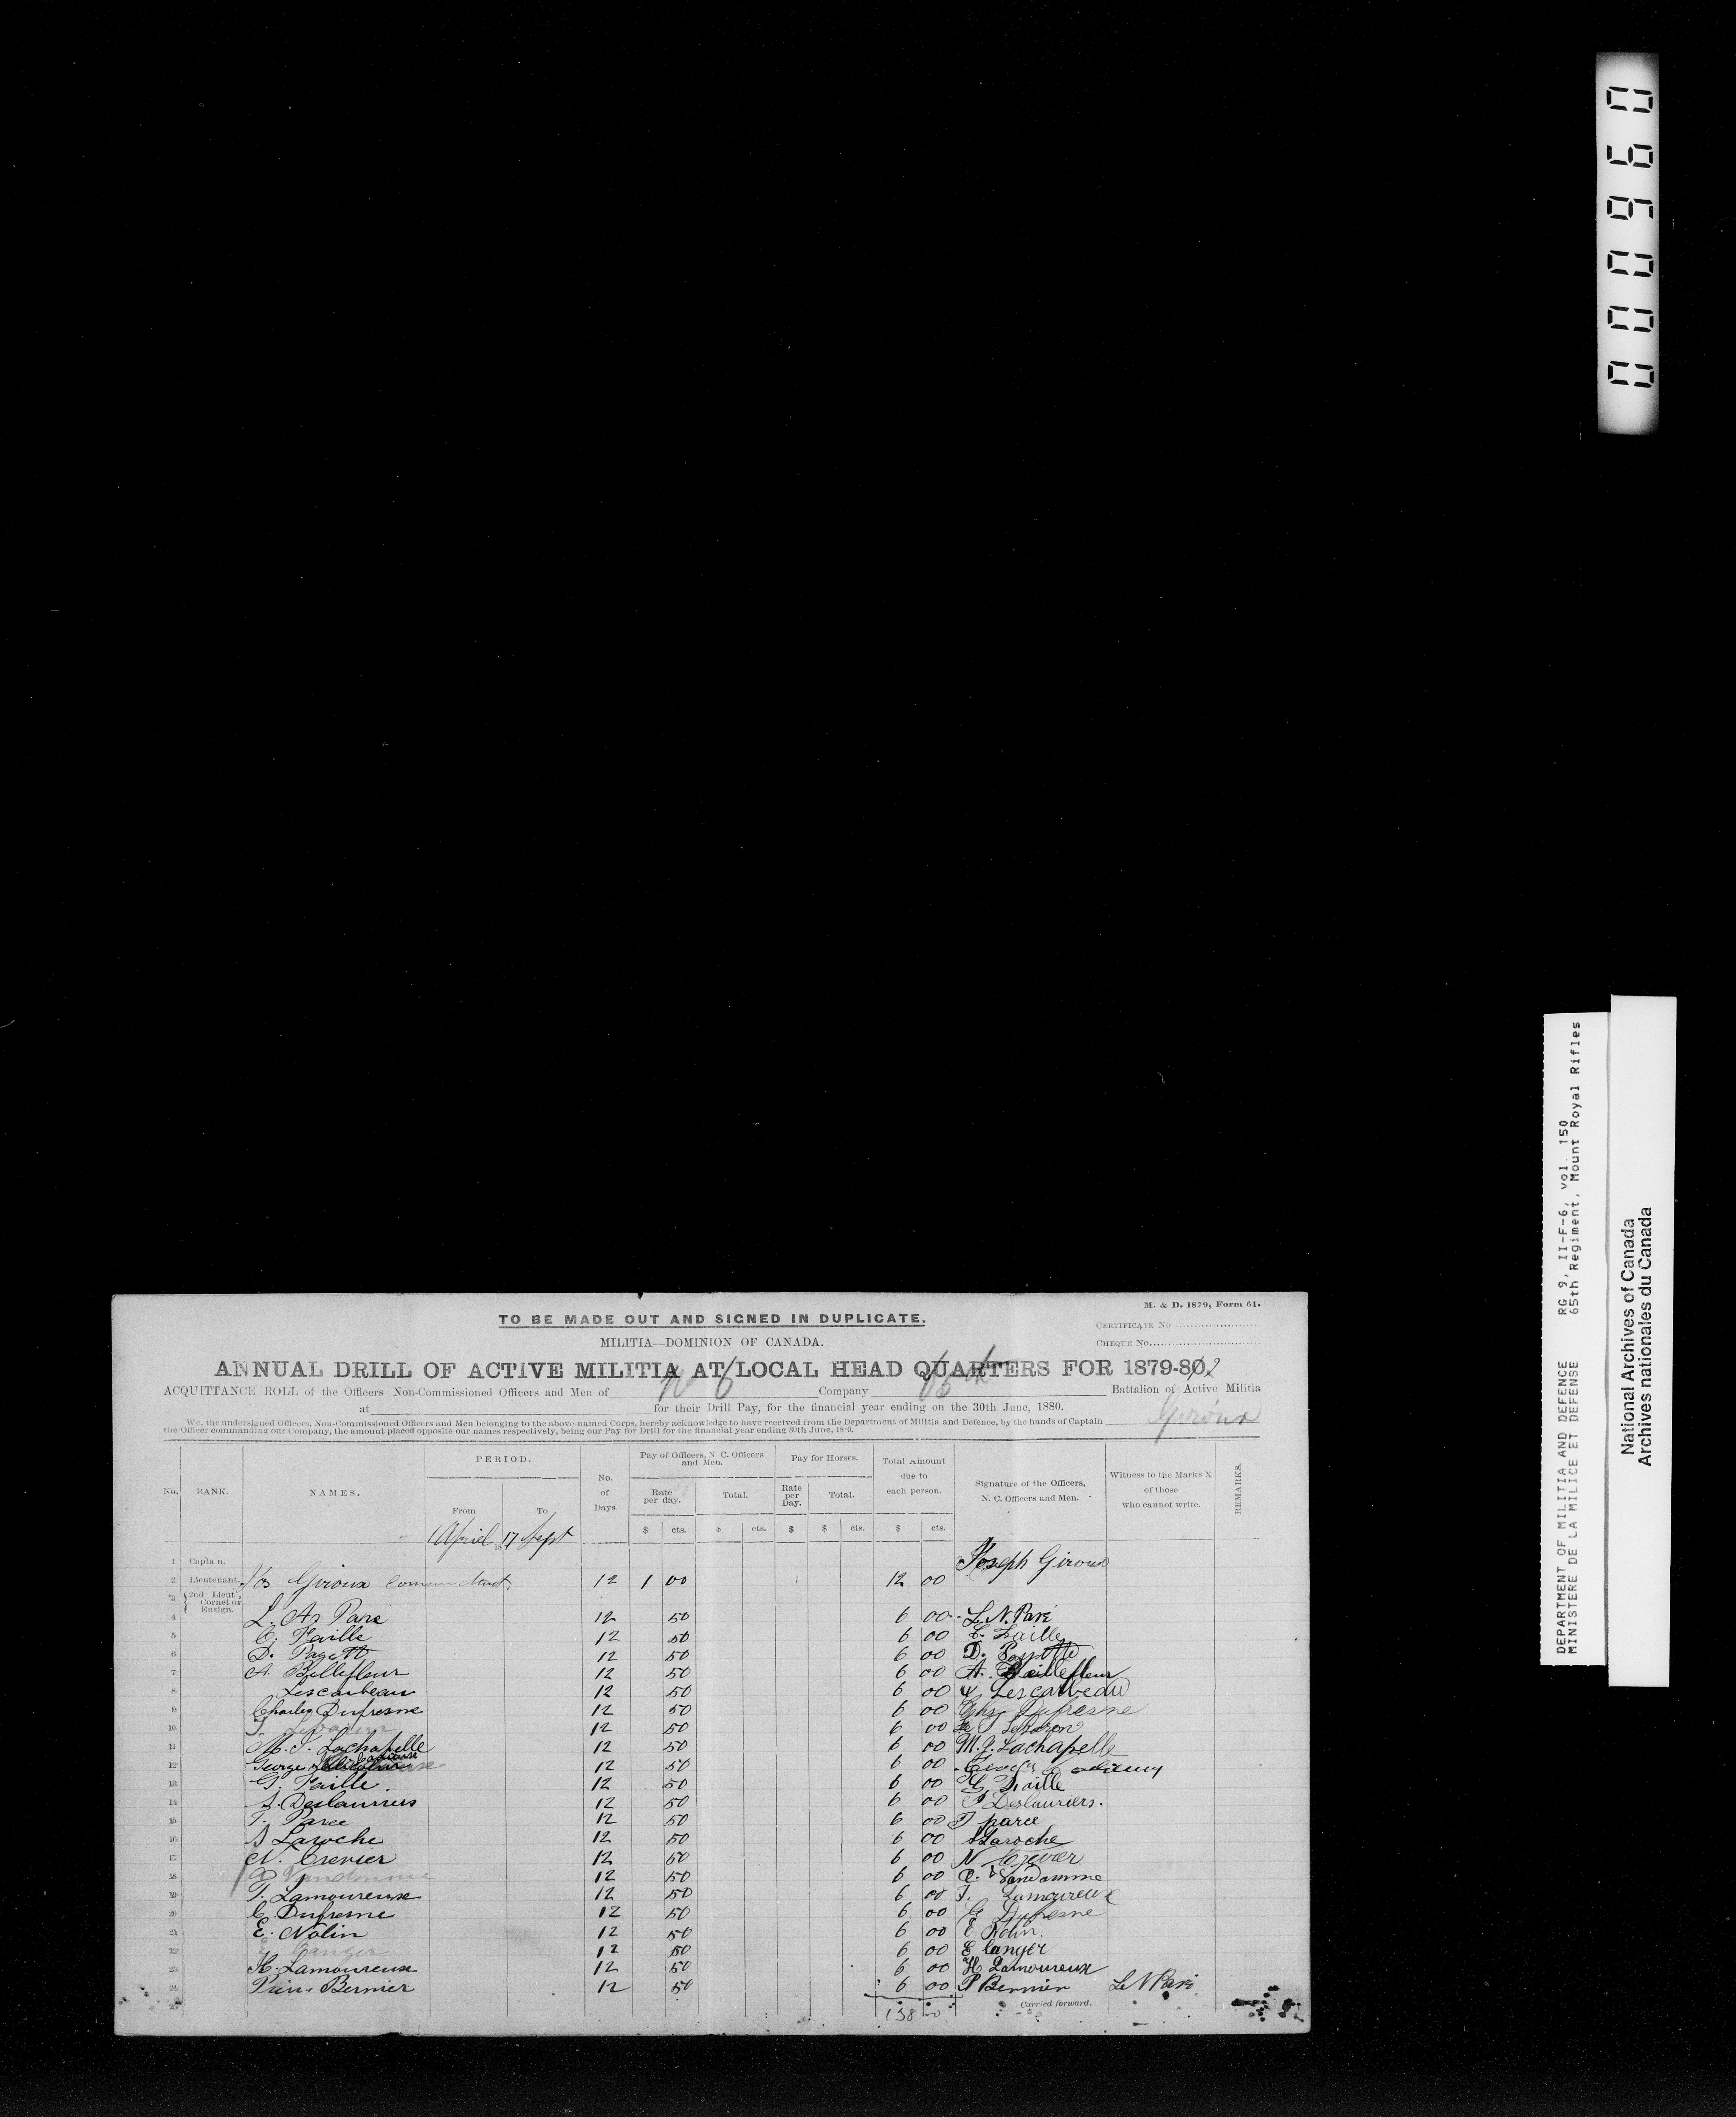 000960
DEPARTMENT OF MILITIA AND DEFENCE RG 9, II-F-6, vol. 150
MINISTERE DE LA MILICE ET DEFENSE 65th Regiment, Mount Royal Rifles
National Archives of Canada
Archives nationales du Canada
M. & D. 1879, Form 61.
TO BE MADE OUT AND SIGNED IN DUPLICATE.
CERTIFICATE No
MILITIA—DOMINION OF CANADA.
CHEQUE No.
ANNUAL DRILL OF ACTIVE MILITIA AT LOCAL HEAD QUARTERS FOR 1879-80 2
ACQUITTANCE ROLL of the Officers Non-Commissioned Officers and Men of No 6 Company 65th Battalion of Active Militia
at for their Drill Pay, for the financial year ending on the 30th June, 1880.
We, the undersigned Officers, Non-Commissioned Officers and Men belonging to the above-named Corps, hereby acknowledge to have received from the Department of Militia and Defence, by the hands of Captain Giroux
the Officer commanding our Company, the amount placed opposite our names respectively, being our Pay for Drill for the financial year ending 30th June, 1880.
No. RANK. NAMES. PERIOD. From To No. of Days. Pay of Officers, N. C. Officers and Men. Rate per day. Total. Pay for Horses. Rate per Day. Total. Total Amount due to each person. Signature of the Officers, N. C. Officers and Men. Witness to the Marks X of those who cannot write. REMARKS.
1 April 17 Sept $ cts. $ cts. $ $ cts. $ cts.
1 Captain. Joseph Giroux
2 Lieutenant. Jos Giroux 12 1 00 12 00
3 2nd Lieut Cornet or Ensign.
4 L. Paré 12 50 6 00 L. N. Paré
5 C. Faille 12 50 6 00 C. Faille
6 D. Payette 12 50 6 00 D. Payette
7 A. Bellefleur 12 50 6 00 A. Bellefleur
8 Lescarbeau 12 50 6 00 Lescarbeau
9 Charles Dufresne 12 50 6 00 Chs Dufresne
10 12 50 6 00 Lebaron
11 M. J. Lachapelle 12 50 6 00 M. J. Lachapelle
12 George 12 50 6 00
13 G. Faille 12 50 6 00 G. Faille
14 Deslauriers 12 50 6 00 Deslauriers.
15 T. Paree 12 50 6 00 T paree
16 Laroche 12 50 6 00 Laroche
17 N. Crevier 12 50 6 00 N Crevier
18 Vandamme 12 50 6 00 Vandamme
19 T. Lamoureuse 12 50 6 00 T. Lamoureux
20 G Dufresne 12 50 6 00 G Dufresne
21 E. Nolin 12 50 6 00 E Nolin.
22 12 50 6 00 E langer
23 H. Lamoureuse 12 50 6 00 H Lamoureux
24 Bernier 12 50 6 00 P Bernier L N Paré
25 138 00 Carried forward.